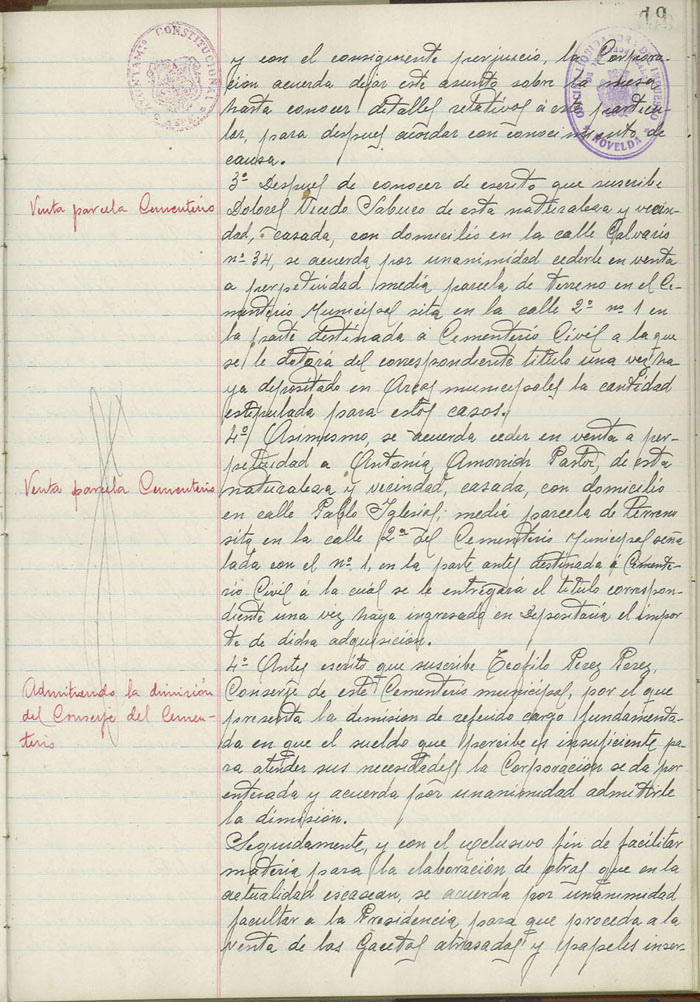 19
AYUNTAMTO CONSTITUCIONAL
ASPE
LIQUIDADORA DEL IMPUESTO
NOVELDA
y con el consiguiente perjuicio, la Corpora-
ción acuerda dejar este asunto sobre la mesa
hasta conocer detalles relativos á ese particu-
lar, para despues acordar con conocimiento de
causa.
Venta parcela Cementerio
3º Despues de conocer de escrito que suscribe
Dolores Vicedo Sabuco de esta naturaleza y vecin-
dad, casada, con domicilio en la calle Calvario
nº 34, se acuerda por unanimidad cederle en venta
a perpetuidad media parcela de terreno en el Ce-
menterio Municipal sita en la calle 2ª nº 1 en
la parte destinada a Cementerio Civil a la que
se le dotará del correspondiente titulo una vez ha-
ya depositado en Arcas municipales la cantidad
estipulada para estos casos.
Venta parcela Cementerio
4º Asimesmo, se acuerda ceder en venta a per-
petuidad a Antonia Pastor, de esta
naturaleza y vecindad, casada, con domicilio
en calle Pablo Iglesias; media parcela de terreno
sita en la calle 2ª del Cementerio Municipal seña-
lada con el nº 1, en la parte antes destinada á Cemente-
rio Civil á la cuál se le entregará el titulo correspon-
diente una vez haya ingresado en Depositaría el impor-
te de dicha adquisición.
Admitiendo la dimisión
del Conserje del Cemen-
terio
4º Antes escrito que suscribe Teofilo Perez Perez,
Conserje de este Cementerio municipal, por el que
presenta la dimision de referido cargo fundamenta-
da en que el sueldo que percibe es insuficiente pa-
ra atender sus necesidades, la Corporación se da por
enterada y acuerda por unanimidad admitirle
la dimisión.
Seguidamente, y con el exclusivo fin de facilitar
materia para la elaboración de otras que en la
actualidad escasean, se acuerda por unanimidad
facultar a la Presidencia para que proceda a la
venta de las Gacetas atrasadas y papeles inser-